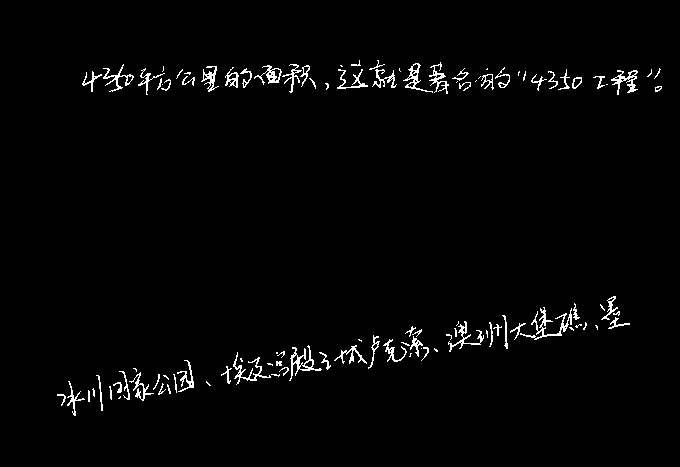 4350平方公里的面积,这就是著名的“4350工程”。
冰川国家公园、埃及宫殿之城卢克索、澳洲大堡礁、墨